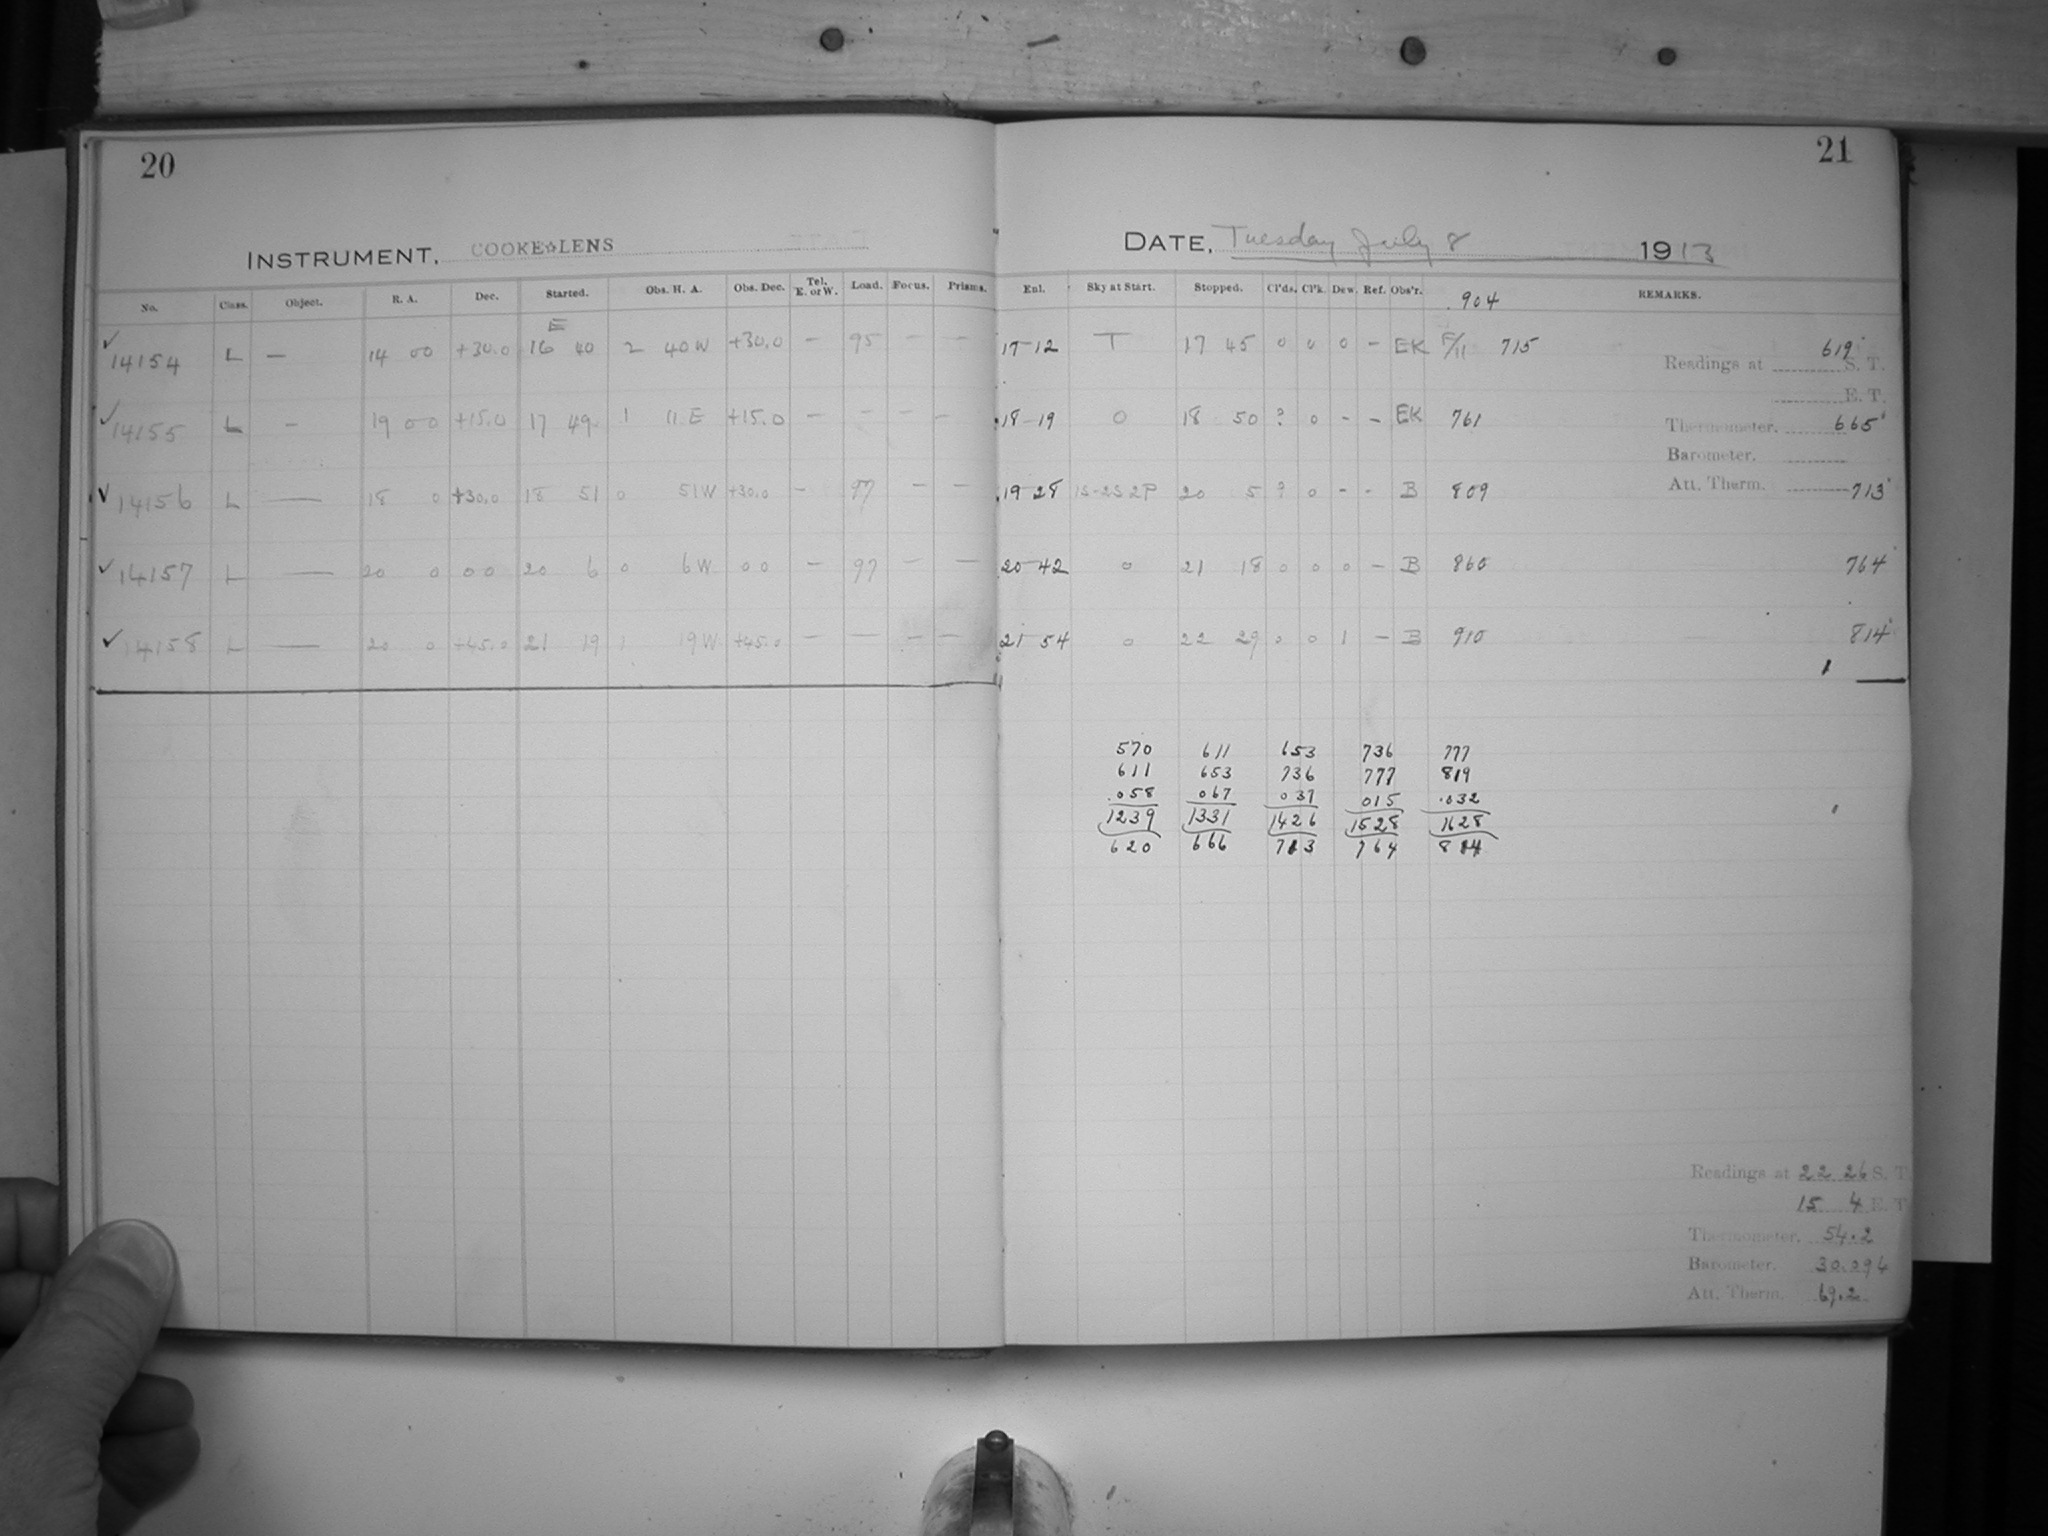 20
INSTRUMENT, COOKE☆LENS
No. Class. Object. R. A. Dec. Started. Obs. H. A. Obs. Dec. Tel. E. or W. Load. Focus. Prisms.
E
✓ 14154 L — 14 00 +30.0 16 40 2 40 W +30.0 — 95 — —
✓ 14155 L — 19 00 +15.0 17 49 1 11 E +15.0 — — — —
✓ 14156 L — 18 0 +30.0 18 51 0 51 W +30.0 — 97 — —
✓ 14157 L — 20 0 0 0 20 6 0 6 W 0 0 — 97 — —
✓ 14158 L — 20 0 +45.0 21 19 1 19 W +45.0 — — — —
21
DATE, Tuesday July 8 1913
Enl. Sky at Start. Stopped. Cl'ds. Cl'k. Dew. Ref. Obs'r. REMARKS.
.904
17-12 T 17 45 0 0 0 – EK F/11 715 619
Readings at S. T.
E. T.
18-19 0 18 50 ? 0 - – EK 761
Thermometer. 665
Barometer.
19 28 2P 20 5 ? 0 - - B 809
Att. Therm. 713
20-42 0 21 18 0 0 0 – B 860 764
21 54 0 22 29 0 0 1 – B 910 814
570 611 653 736 777
611 653 736 777 819
.058 .067 .037 .015 .032
1239 1331 1426 1528 1628
620 666 713 764 814
Readings at 22 26 S. T.
15 4 E. T.
Thermometer. 54.2
Barometer. 30.094
Att. Therm. 69.2